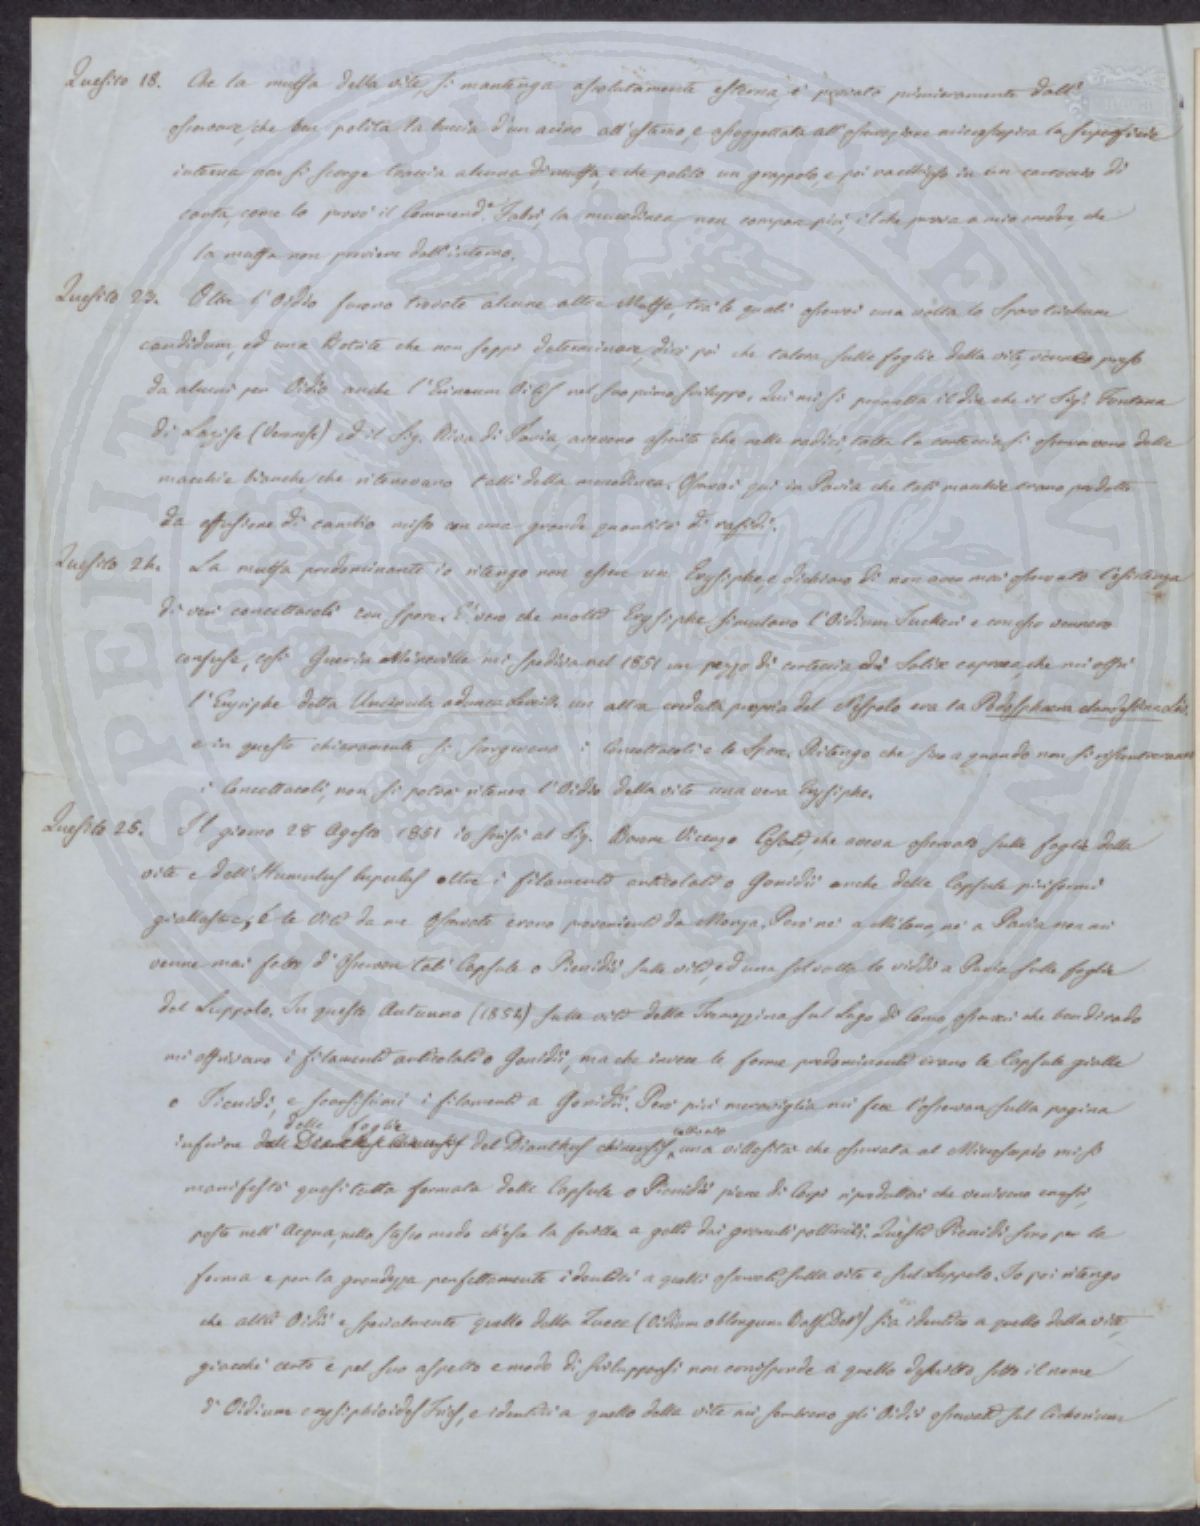 Quesito 18. Che la muffa della vite, si mantenga assolutamente esterna, è provato primieramente dall'
osservare, che ben polita la buccia d'un acino all'esterno, e assoggettata all'osservazione microscopica la superficie
interna non si scorge traccia alcuna di muffa, e che polito un grappolo, e poi racchiuso in un cartoccio di
carta, come lo provò il Commend.e Fabri, la mucedinea non compar più, il che prova a mio credere, che
la muffa non proviene dall'interno.
Quesito 23. Oltre l'Oidio furono trovate alcune altre Muffe, tra le quali osservai una volta lo Sporotrichum
candidum, ed una Botrite che non seppi determinare, dirò poi che talora sulle foglie della vite, venne preso
da alcuni per Oidio anche l'Erineum Vitis nel suo primo sviluppo. Qui mi si permetta il dire che il Sig.r Fontana
di Lazise (Veronese) ed il Sig. Riva di Pavia, avevano asserito che nelle radici, tolta la corteccia si osservavano delle
macchie bianche, che ritenevano talli della mucedinea. Osservai qui in Pavia che tali macchie erano prodotte
da effusione di cambio misto con una grande quantità di rafidi.
Quesito 24. La muffa predominante io ritengo non essere un Erysiphe, e dichiaro di non aver mai osservato l'esistenza
di veri concettacoli con spore. È vero che molti Erysiphe simulano l'Oidium Tuckeri e con esso vennero
confuse, così Guerin Méneville mi spediva nel 1851 un pezzo di corteccia di Salix caprea, che mi offrì
l'Erysiphe detta Uncinula adunca Leveill. un altra creduta propria del Nespolo era la Podosphaera Lév.
e in queste chiaramente si scorgevano i Concettacoli e le Spore. Ritengo che sino a quando non si riscontreranno
i Concettacoli, non si potrà ritenere l'Oidio della vite una vera Erysiphe.
Quesito 25. Il giorno 28 Agosto 1851 io scrissi al Sig. Barone Vicenzo Cesati, che aveva osservato sulle foglie della
vite e dell'Humulus lupulus oltre i filamenti articolati o Gonidii anche delle Capsule piriformi
giallastre, e le Viti da me osservate erano provenienti da Monza. Però nè a Milano, nè a Pavia non mi
venne mai fatto d'osservare tali Capsule o Picnidii sulle viti, ed una sol volta le viddi a Pavia sulle foglie
del Luppolo. In questo Autunno (1852) sulle viti della Tremezzina sul Lago di Como, osservai che ben di rado
mi offrivano i filamenti articolati o Gonidii, ma che invece le forme predominanti erano le Capsule gialle
o Picnidi, e scarsissimi i filamenti a Gonidii. Però più meraviglia mi fece l'osservare sulla pagina
delle foglie
inferiore del Dianthus chinensis, una villosità che osservata al Microscopio mi si
manifestò quasi tutta formata delle Capsule o Picnidii piene di Corpi riproduttori che venivano emessi,
poste nell'Acqua, nello stesso modo ch'esce la fovilla a getti dai granuli pollinici. Questi Picnidi sono per la
forma e per la grandezza perfettamente identici a quelli osservati sulla vite e sul Luppolo. Io poi ritengo
che altri Oidii e specialmente quello delle Zucce (Oidium oblongum Bals. DeN.) sia identico a quello della vite,
giacchè certo e pel suo aspetto e modo di svilupparsi non corrisponde a quello descritto sotto il nome
d'Oidium erysiphioides Fries, e identici a quello della vite mi sembrano gli Oidii osservati sul Cichorium